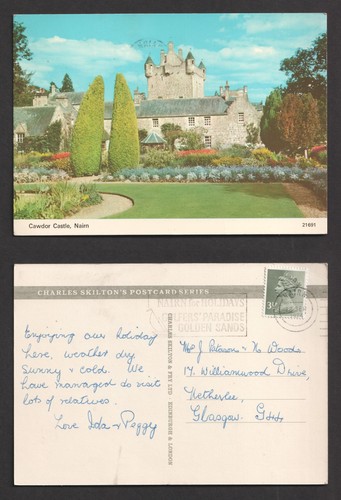 Cawdor Castle, Nairn
21691
CHARLES SKILTON'S POSTCARD SERIES
NAIRN for HOLIDAYS
GOLFERS' PARADISE
GOLDEN SANDS
3½
CHARLES SKILTON & FRY LTD EDINBURGH & LONDON
Enjoying our holiday
here, weather dry
sunny & cold. We
have managed to visit
lots of relatives.
Love Ida & Peggy
J Paterson & N Woods
17, Williamwood Drive,
Netherlee,
Glasgow. G44